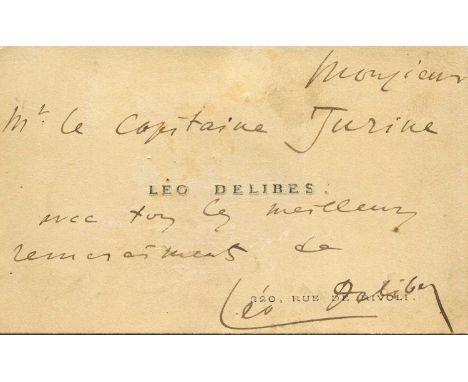 Monsieur
Mr le Capitaine Jurine
LÉO DELIBES.
avec tous les meilleurs
remerciements de
220, RUE DE RIVOLI.
Léo Delibes